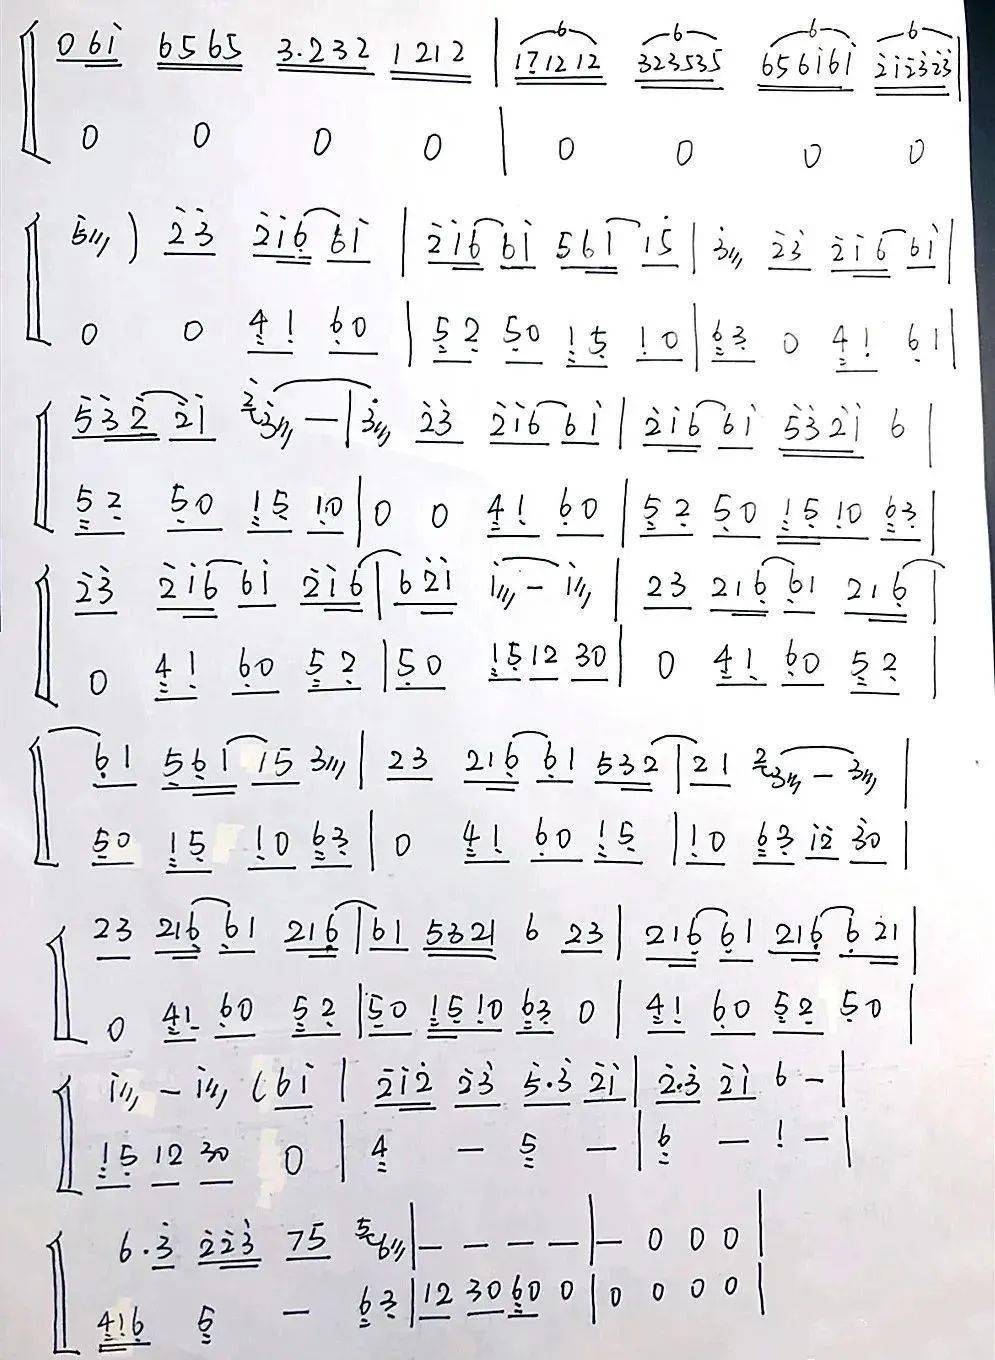 0 6 i 6 5 6 5 3 . 2 3 2 1 2 1 2 | 1 7 1 2 1 2 3 2 3 5 3 5 6 5 6 i 6 i 2 i 2 3 2 3 |
0 0 0 0 | 0 0 0 0
5 /// ) 2 3 2 i 6 6 i | 2 i 6 6 i 5 6 i i 5 | 3 /// 2 3 2 i 6 6 i |
0 0 4 1 6 0 | 5 2 5 0 1 5 1 0 | 6 3 0 4 1 6 1 |
5 3 2 2 i 2 3 /// — | 3 /// 2 3 2 i 6 6 i | 2 i 6 6 i 5 3 2 i 6 |
5 2 5 0 1 5 1 0 | 0 0 4 1 6 0 | 5 2 5 0 1 5 1 0 6 3 |
2 3 2 i 6 6 i 2 i 6 | 6 2 i i /// — i /// | 2 3 2 1 6 6 1 2 1 6 |
0 4 1 6 0 5 2 | 5 0 1 5 1 2 3 0 | 0 4 1 6 0 5 2 |
6 1 5 6 1 1 5 3 /// | 2 3 2 1 6 6 1 5 3 2 | 2 1 2 3 /// — 3 /// |
5 0 1 5 1 0 6 3 | 0 4 1 6 0 1 5 | 1 0 6 3 1 2 3 0 |
2 3 2 1 6 6 1 2 1 6 | 6 1 5 3 2 1 6 2 3 | 2 1 6 6 1 2 1 6 6 2 1 |
0 4 1 6 0 5 2 | 5 0 1 5 1 0 6 3 0 | 4 1 6 0 5 2 5 0 |
i /// — i /// ( 6 i | 2 i 2 2 3 5 . 3 2 i | 2 . 3 2 i 6 — |
1 5 1 2 3 0 0 | 4 — 5 — | 6 — 1 — |
6 . 3 2 2 3 7 5 5 6 /// | — — — — | — 0 0 0 |
4 1 6 5 — 6 3 | 1 2 3 0 6 0 0 | 0 0 0 0 |